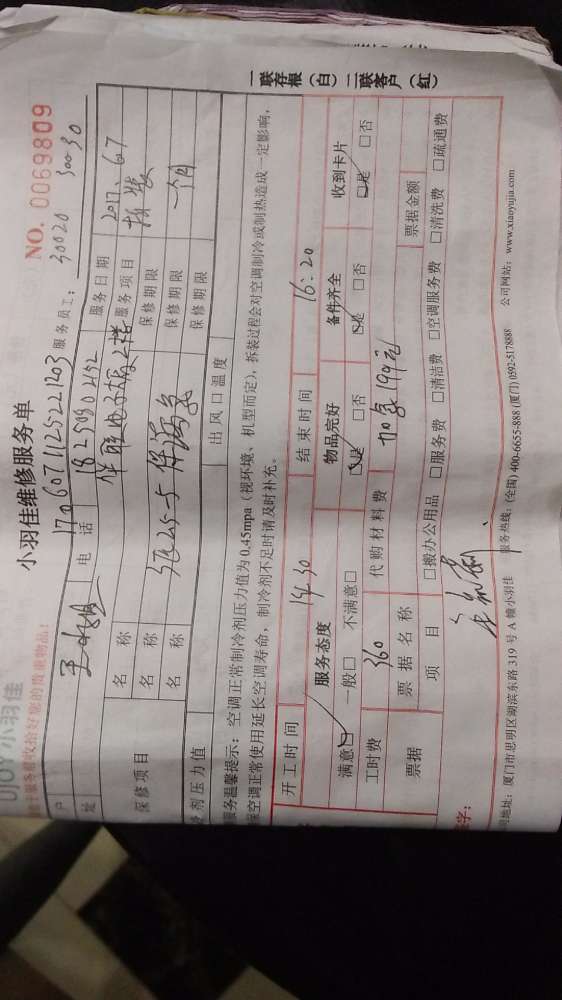 DJOY小羽佳
小羽佳维修服务单
NO. 0069809
收拾好您的贵重物品！
1706071125221203 服务员工： 30020 30030
户 王 电话 18250802192 服务日期 2017.6.7
址 华联电子 2楼 服务项目 拆装
保修项目 名称 保修期限
名称 25-5 保修期限 一个月
名称 保修期限
制剂压力值 出风口温度
服务温馨提示：空调正常制冷剂压力值为0.45mpa（视环境、机型而定），拆装过程会对空调制冷或制热造成一定影响，
保空调正常使用延长空调寿命，制冷剂不足时请及时补充。
开工时间 14:30 结束时间 16:20
服务态度 物品完好 备件齐全 收到卡片
满意☑ 一般□ 不满意□ ☑是 □否 ☑是 □否 ☑是 □否
工时费 360 代购材料费 加氟199元
票据 票据名称 票据金额
项目 □搬办公用品 □服务费 □清洁费 □空调服务费 □清洗费 □疏通费
签字：
司地址：厦门市思明区湖滨东路319号A幢小羽佳 服务热线：(全国) 400-6655-888 (厦门) 0592-5178888 公司网站：www.xiaoyujia.com
一联存根（白）二联客户（红）